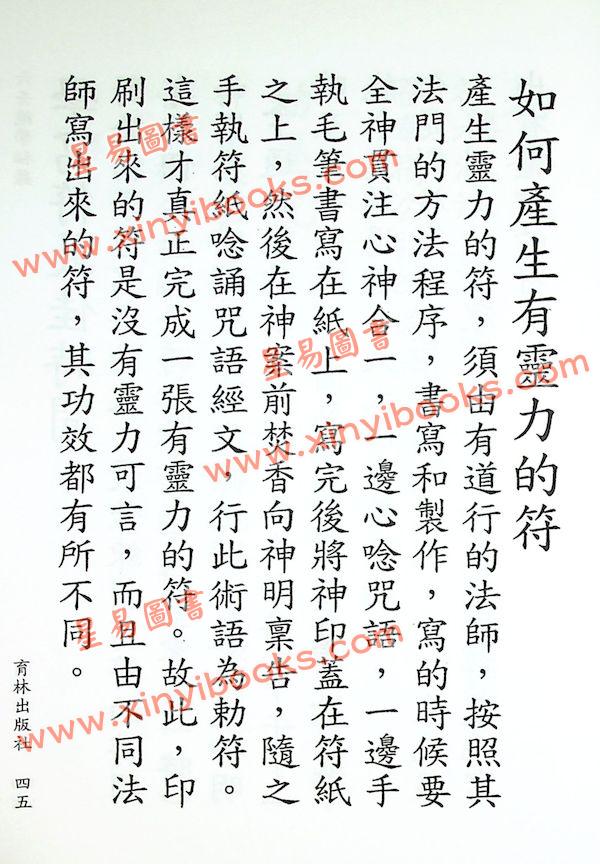 如何產生有靈力的符
產生靈力的符，須由有道行的法師，按照其
法門的方法程序，書寫和製作，寫的時候要
全神貫注心神合一，一邊心唸咒語，一邊手
執毛筆書寫在紙上，寫完後將神印蓋在符紙
之上，然後在神案前焚香向神明稟告，隨之
手執符紙唸誦咒語經文，行此術語為勅符。
這樣才真正完成一張有靈力的符。故此，印
刷出來的符是沒有靈力可言，而且由不同法
師寫出來的符，其功效都有所不同。
育林出版社 四五
星易圖書
www.xinyibooks.com
星易圖書
www.xinyibooks.com
星易圖書
www.xinyibooks.com